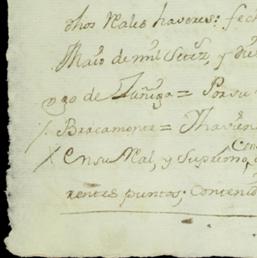 dhos Rales haveres: fech
Maio de mil Setez, y die
ogo de Zuñiga = Por su
Bracamonte = Thavien
En su Rl, y Supremo, Con
rentes puntos; Contenid